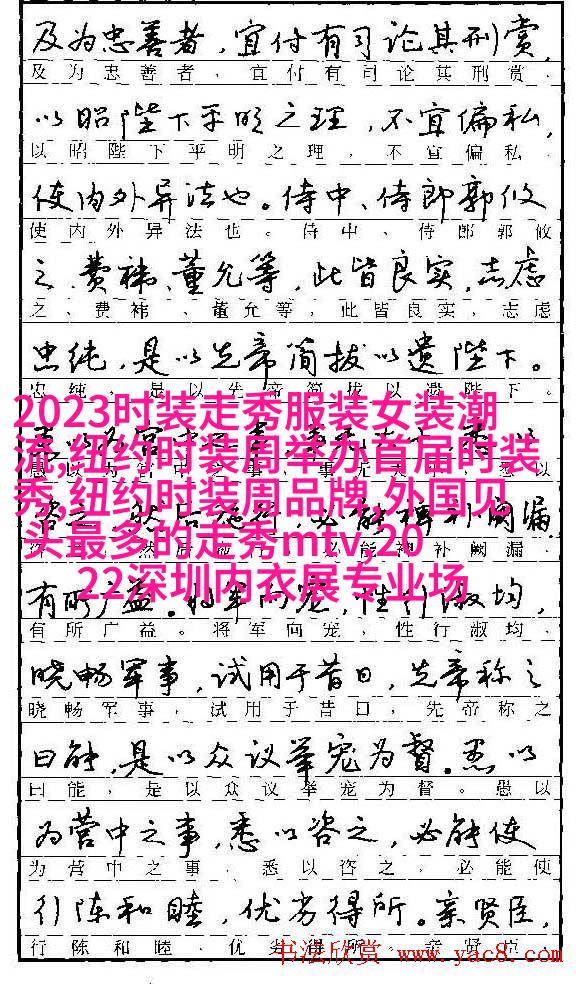 及为忠善者，宜付有司论其刑赏，
及为忠善者，宜付有司论其刑赏，
以昭陛下平明之理，不宜偏私，
以昭陛下平明之理，不宜偏私，
使内外异法也。侍中、侍郎郭攸
使内外异法也。侍中、侍郎郭攸
之、费祎、董允等，此皆良实，志虑
之、费祎、董允等，此皆良实，志虑
忠纯，是以先帝简拔以遗陛下。
忠纯，是以先帝简拔以遗陛下。
2023时装走秀服装女装潮
流,纽约时装周举办首届时装
秀,纽约时装周品牌,外国见
头最多的走秀mtv,20
22深圳内衣展专业场
必能裨补阙漏，
有所广益。将军向宠，性行淑均，
有所广益。将军向宠，性行淑均，
晓畅军事，试用于昔日，先帝称之
晓畅军事，试用于昔日，先帝称之
曰能，是以众议举宠为督。愚以
曰能，是以众议举宠为督。愚以
为营中之事，悉以咨之，必能使
为营中之事，悉以咨之，必能使
行陈和睦，优劣得所。亲贤臣，
行陈和睦，优劣得所。亲贤臣，
书法欣赏 www.yac8.com